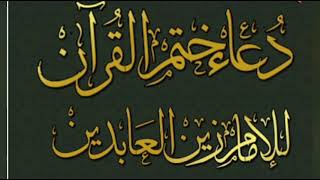 دُعَاء ختم القُرآن
للإمام زين العَابدين